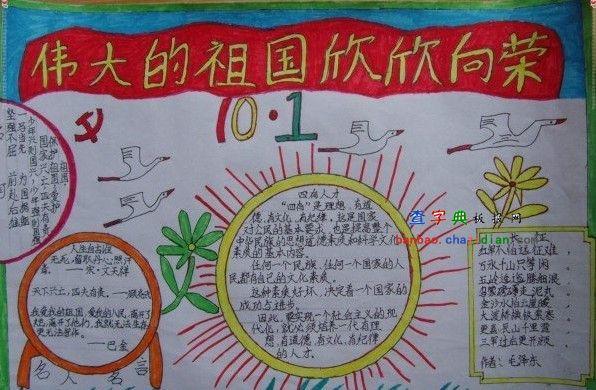 伟大的祖国欣欣向荣
10·1
四有人才
“四有”是理想、有道
德、有文化、有纪律,这是国家
对公民的基本要求,也是提高整个
中华民族的思想道德素质和科学文化
素质的基本内容。
任何一个民族、任何一个国家的人
民都有自己的文化素质。
这种素质好坏,决定着一个国家的
成功与进步。
因此,要实现一个社会主义的现
代化,就必须培养一代有理
想、有道德、有文化、有纪律
的人才。
人生自古谁
无死,留取丹心照汗
青。——宋·文天祥
天下兴亡,匹夫有责。——顾炎武
我爱我的祖国,爱我的人民,离开了
她,离开了他们,我就无法生存,
更无法写作。
——巴金
名人名言
查字典板报网
banbao.chazidian.com
长征
红军不怕远征难
万水千山只等闲
五岭逶迤腾细浪
乌蒙磅礴走泥丸
金沙水拍云崖暖
大渡桥横铁索寒
更喜岷山千里雪
三军过后尽开颜
作者:毛泽东